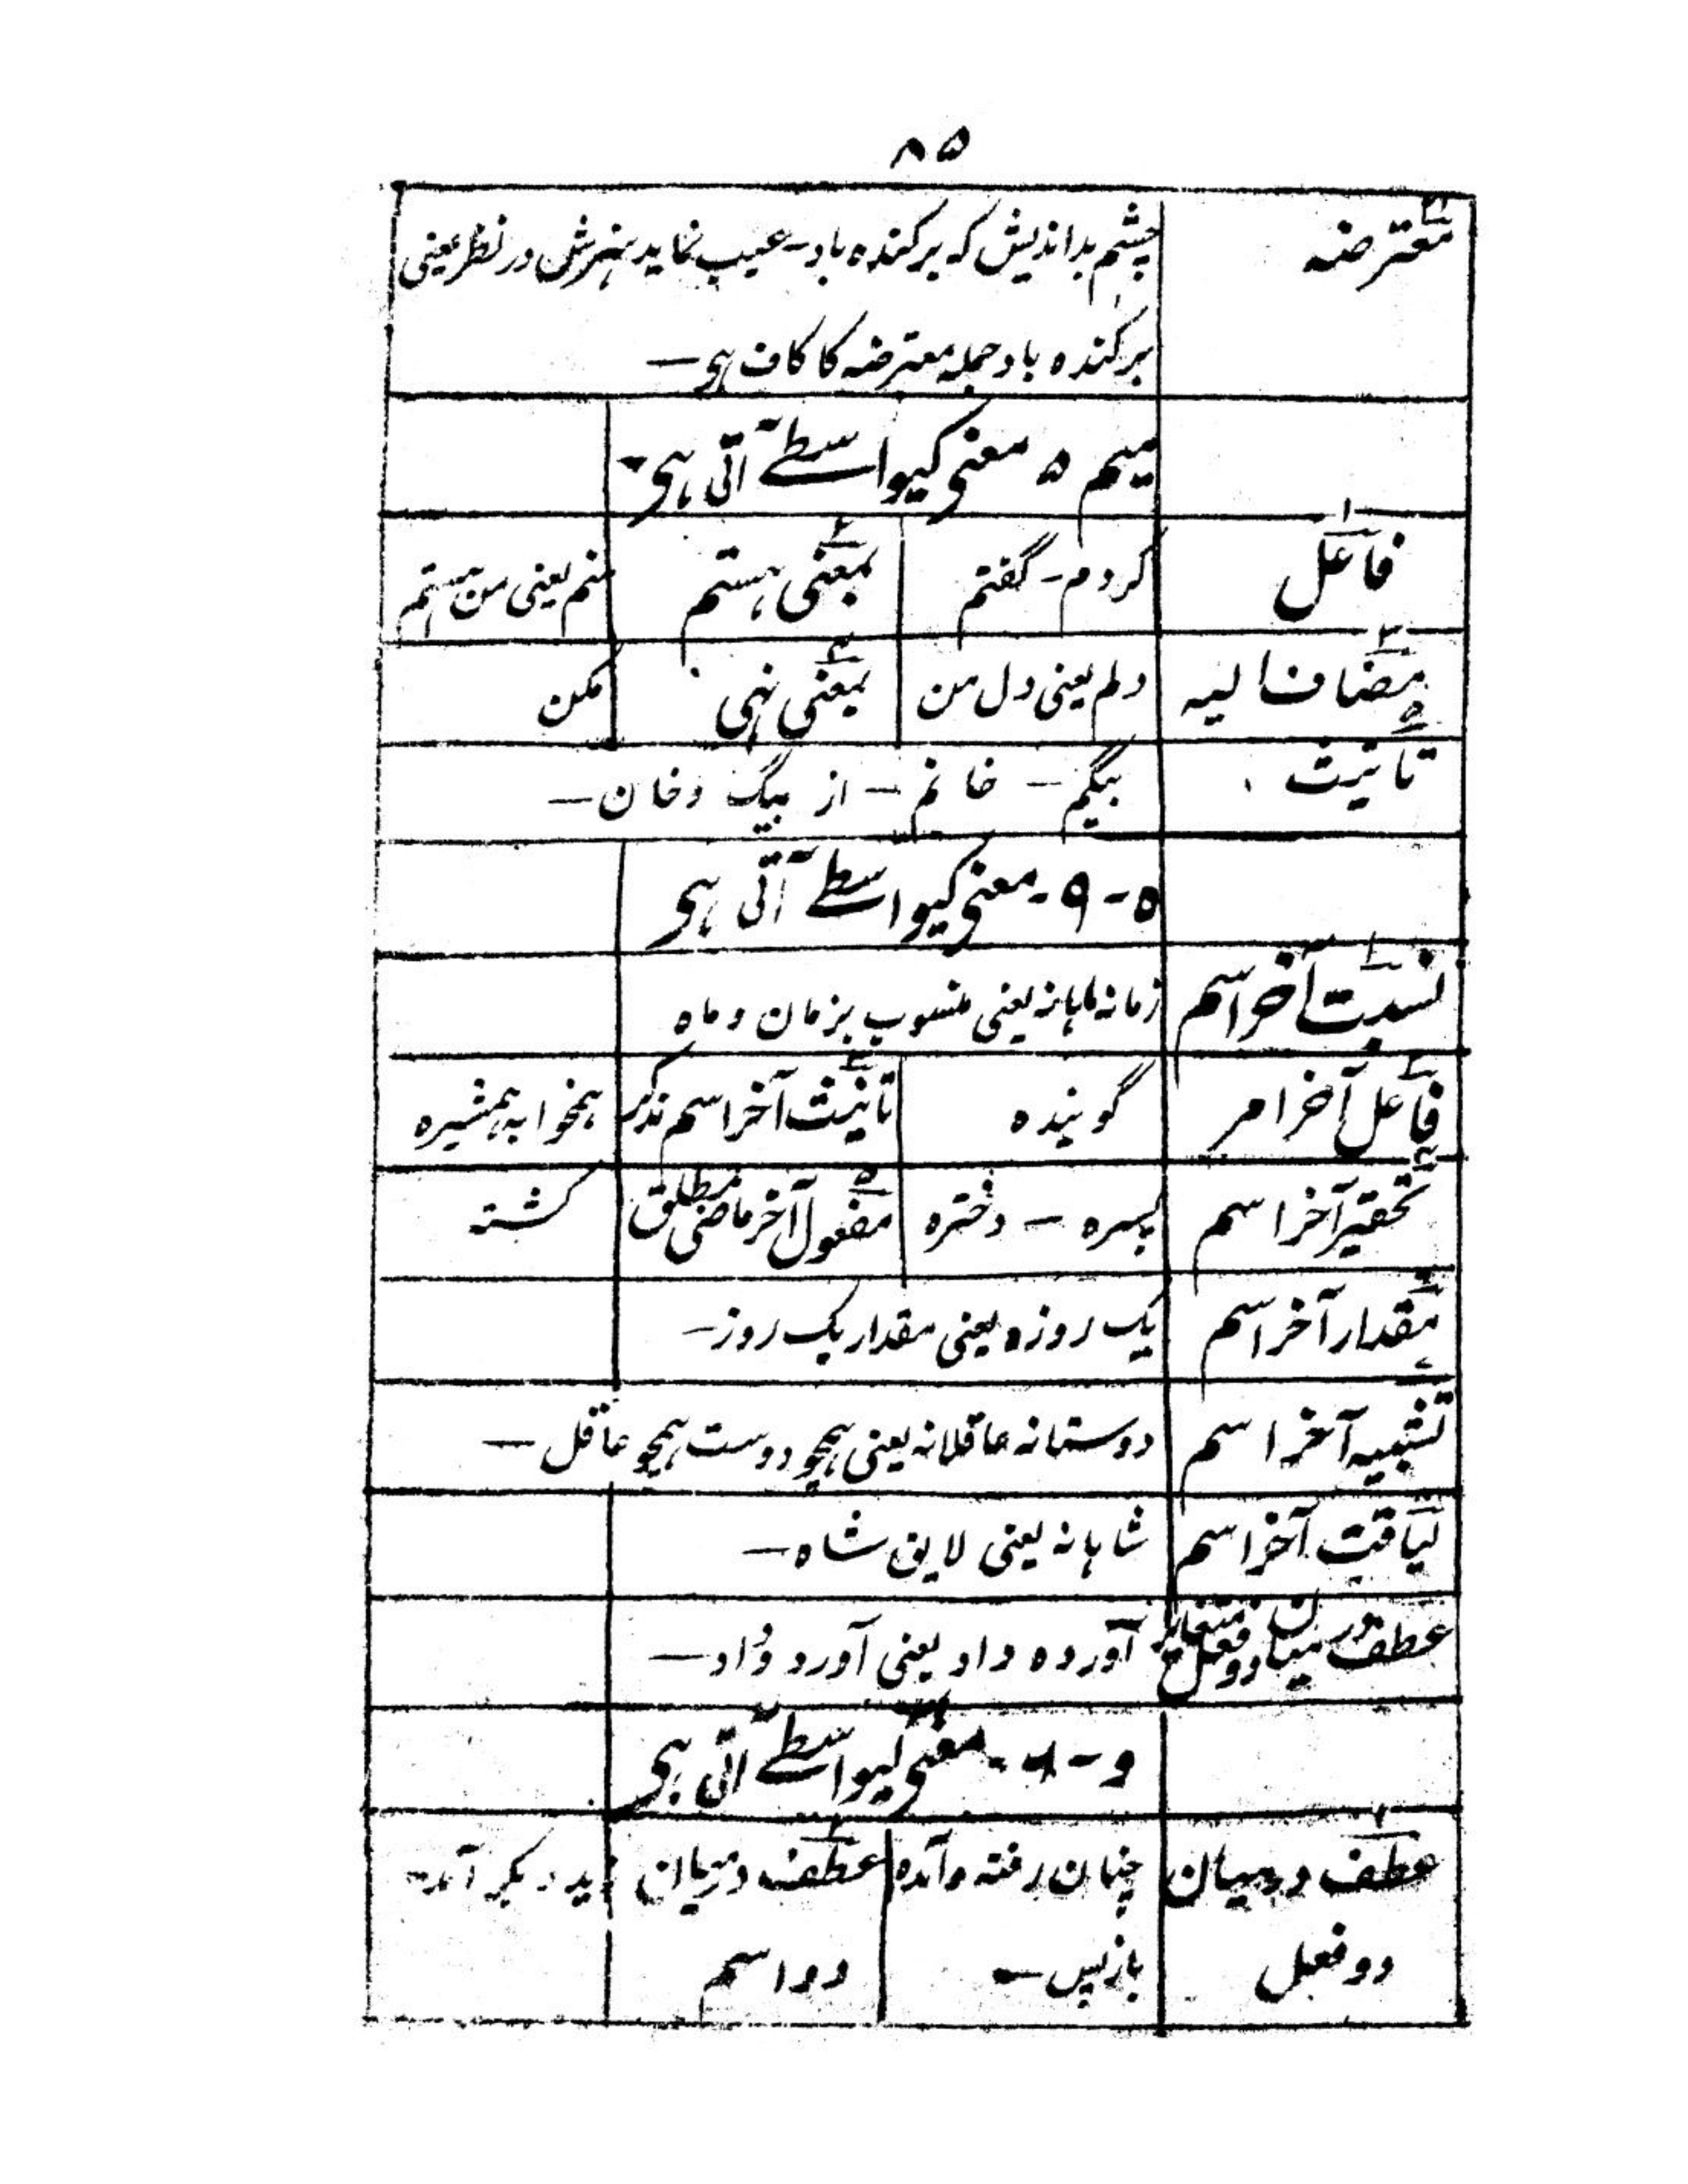 ۸۵
معترضہ چشم بداندیش کہ برکندہ باد - عیب نماید ہنرش در نظر یعنی
برکندہ باد جملہ معترضہ کا کاف ہی -
میم ۵ معنی کیواسطے آتی ہی -
۱ فاعل کردم - گفتم ۲ بمعنی ہستم منم یعنی من ہستم
۳ مضاف الیہ دلم یعنی دل من ۴ بمعنی نہی مکن
۵ تانیث بیگم - خانم - از بیگ و خان -
ہ - ۹ - معنی کیواسطے آتی ہی
۱ نسبت آخر اسم زمانہ ماہانہ یعنی منسوب بزمان و ماہ
۲ فاعل آخر امر گویندہ ۳ تانیث آخر اسم مذکر ہمخوابہ ہمشیرہ
۴ تحقیر آخر اسم پسرہ - دخترہ ۵ مفعول آخر ماضی مطلق کشتہ
۶ مقدار آخر اسم یک روزہ یعنی مقدار یک روز -
۷ تشبیہ آخر اسم دوستانہ عاقلانہ یعنی ہمچو دوست ہمچو عاقل -
لیاقت آخر اسم شاہانہ یعنی لایق شاہ -
عطف درمیان دو فعل آوردہ داد یعنی آورد و داد -
و - ۶ - معنی کیواسطے آتی ہی
۱ عطف درمیان چنان رفتہ و آمدہ ۲ عطف درمیان آمد -
دو فعل بازپس - دو اسم